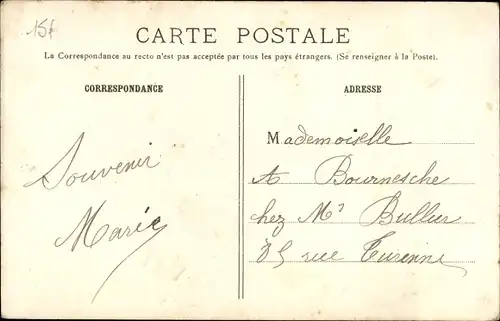 15f
CARTE POSTALE
La Correspondance au recto n'est pas acceptée par tous les pays étrangers. (Se renseigner à la Poste).
CORRESPONDANCE
Souvenir
Marie
ADRESSE
Mademoiselle
A Bournesche
chez Mr Bullur
rue Turenne